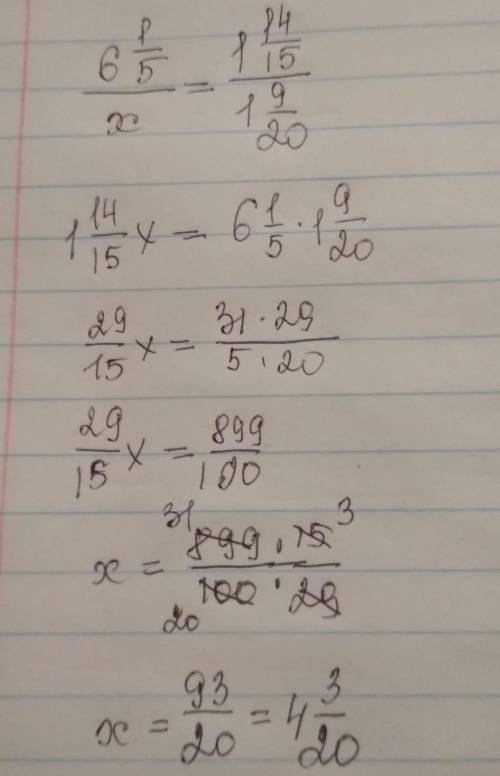 6 1/5 / x = 1 14/15 / 1 9/20
1 14/15 x = 6 1/5 · 1 9/20
29/15 x = 31 · 29 / 5 · 20
29/15 x = 899/100
x = 31 899 · 15 3 / 20 100 · 29
x = 93/20 = 4 3/20